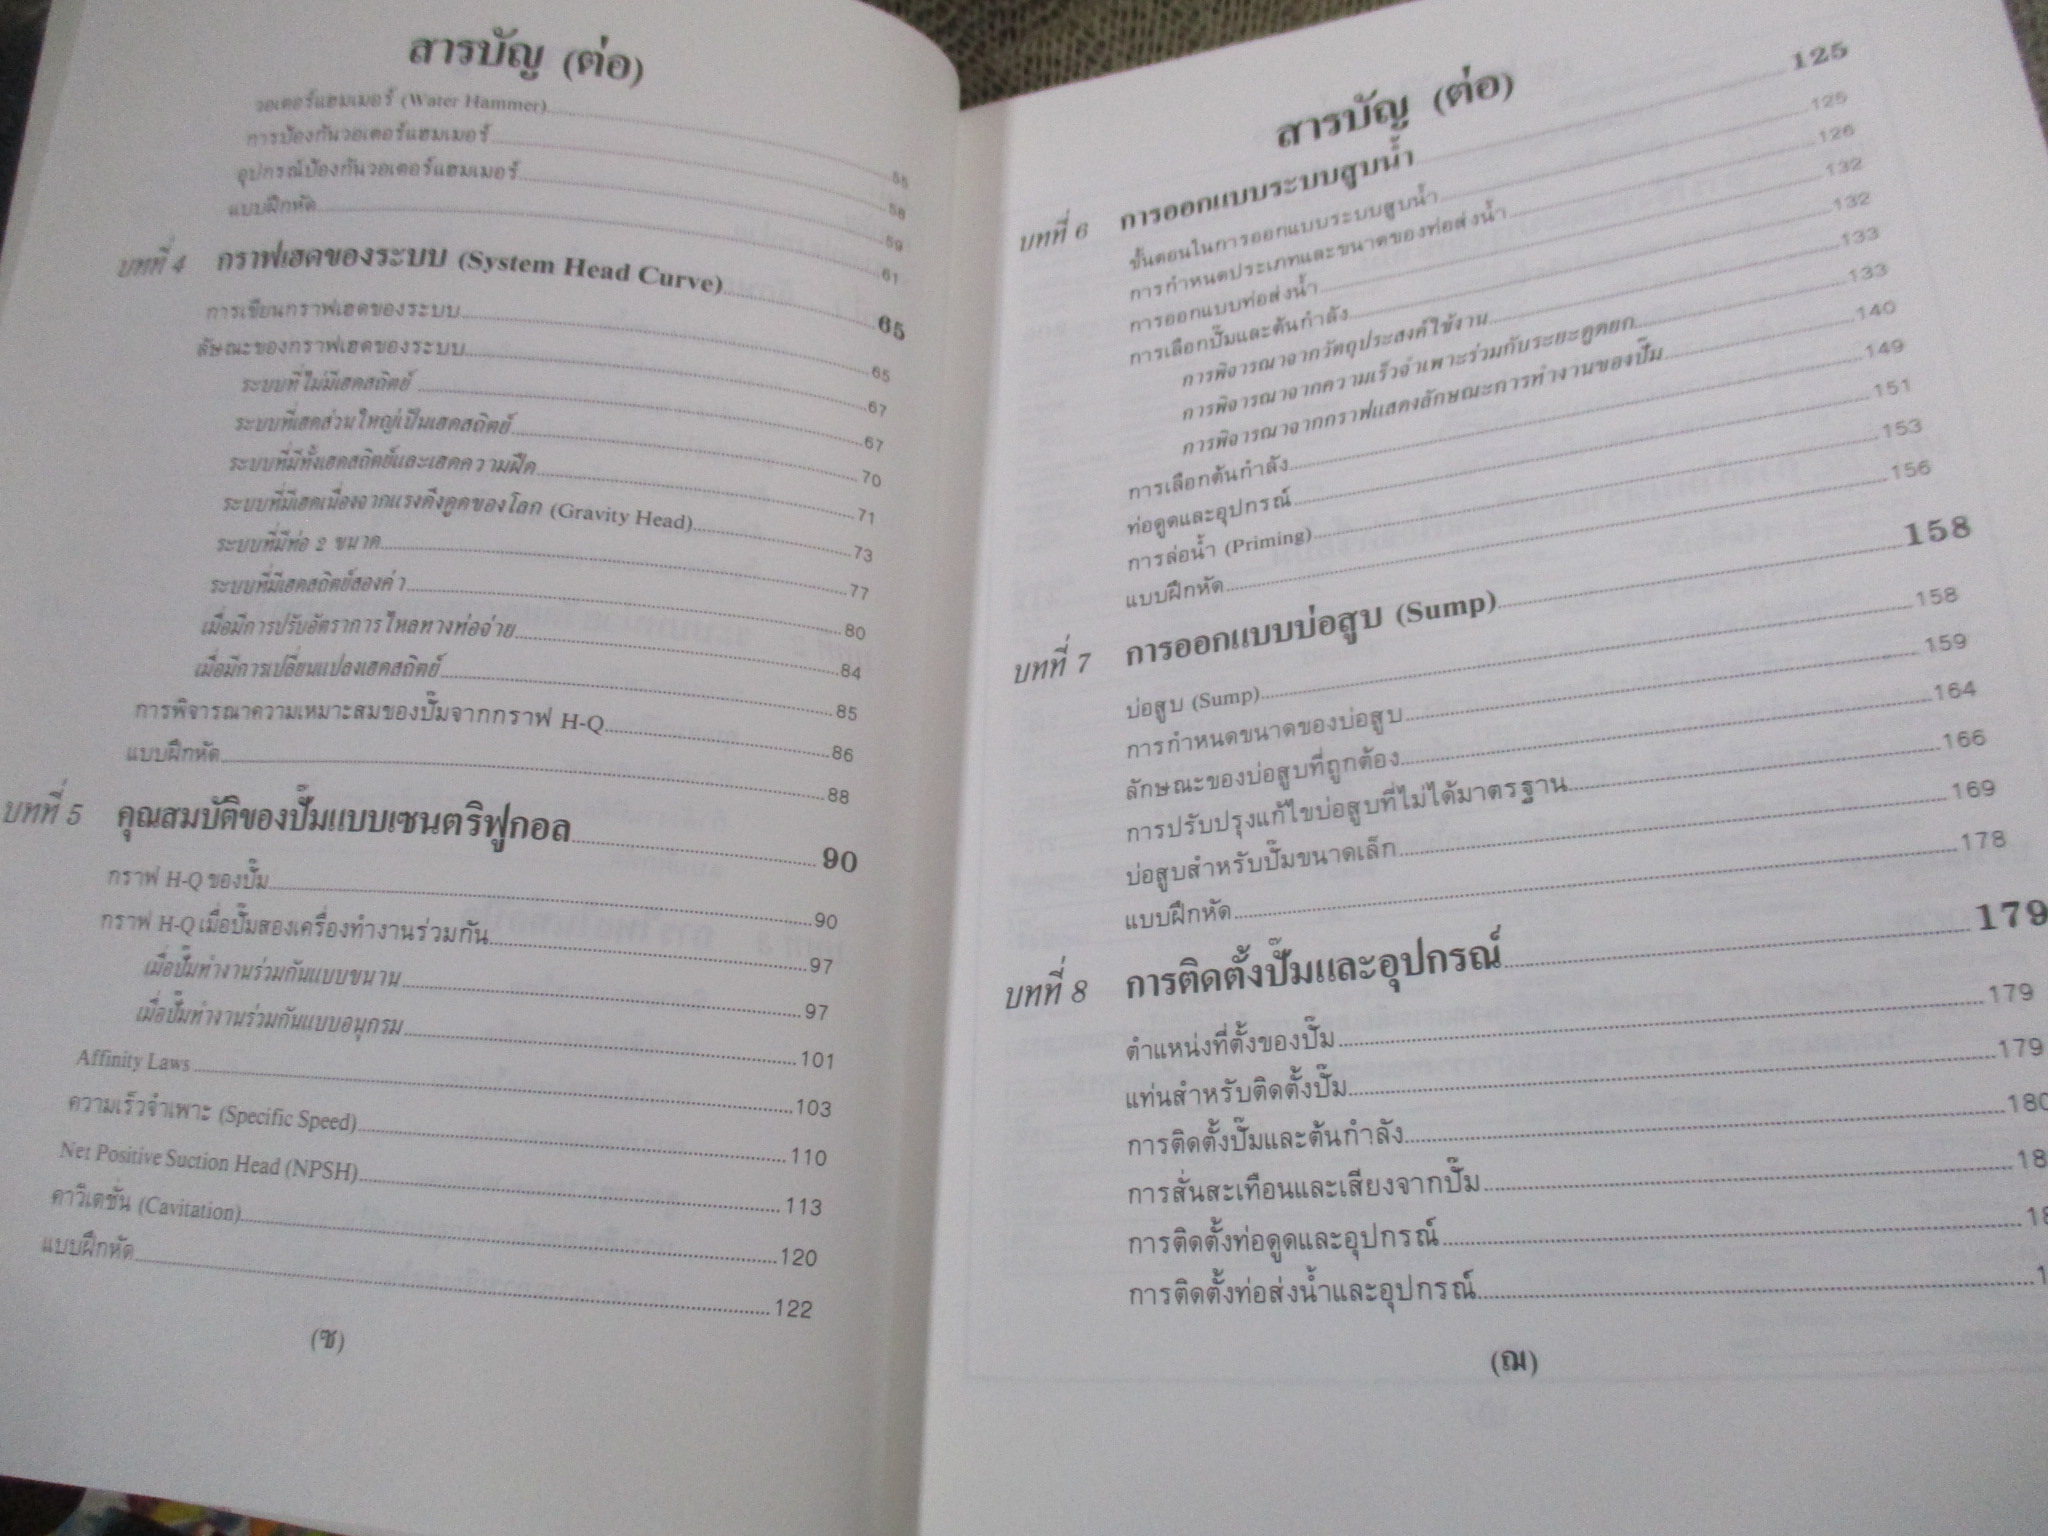 สารบัญ (ต่อ)
วอเตอร์แฮมเมอร์ (Water Hammer)........55
การป้องกันวอเตอร์แฮมเมอร์........58
อุปกรณ์ป้องกันวอเตอร์แฮมเมอร์........59
แบบฝึกหัด........61
บทที่ 4 กราฟเฮดของระบบ (System Head Curve)........65
การเขียนกราฟเฮดของระบบ........65
ลัษณะของกราฟเฮดของระบบ........67
ระบบที่ไม่มีเฮดสถิตย์........67
ระบบที่เฮดส่วนใหญ่เป็นเฮดสถิตย์........70
ระบบที่มีทั้งเฮดสถิตย์และเฮดความฝืด........71
ระบบที่มีเฮดเนื่องจากแรงดึงดูดของโลก (Gravity Head)........73
ระบบที่มีท่อ 2 ขนาด........77
ระบบที่มีเฮดสถิตย์สองค่า........80
เมื่อมีการปรับอัตราการไหลทางท่อจ่าย........84
เมื่อมีการเปลี่ยนแปลงเฮดสถิตย์........85
การพิจารณาความเหมาะสมของปั๊มจากกราฟ H-Q........86
แบบฝึกหัด........88
บทที่ 5 คุณสมบัติของปั๊มแบบเซนตริฟูกอล........90
กราฟ H-Q ของปั๊ม........90
กราฟ H-Q เมื่อปั๊มสองเครื่องทำงานร่วมกัน........97
เมื่อปั๊มทำงานร่วมกันแบบขนาน........97
เมื่อปั๊มทำงานร่วมกันแบบอนุกรม........101
Affinity Laws........103
ความเร็วจำเพาะ (Specific Speed)........110
Net Positive Suction Head (NPSH)........113
คาวิเตชั่น (Cavitation)........120
แบบฝึกหัด........122
(ซ)
สารบัญ (ต่อ)
บทที่ 6 การออกแบบระบบสูบน้ำ........125
ขั้นตอนในการออกแบบระบบสูบน้ำ........125
การกำหนดประเภทและขนาดของท่อส่งน้ำ........126
การออกแบบท่อส่งน้ำ........132
การเลือกปั๊มและต้นกำลัง........132
การพิจารณาจากวัตถุประสงค์ใช้งาน........133
การพิจารณาจากความเร็วจำเพาะร่วมกับระยะดูดยก........133
การพิจารณาจากกราฟแสดงลักษณะการทำงานของปั๊ม........140
การเลือกต้นกำลัง........149
ท่อดูดและอุปกรณ์........151
การล่อน้ำ (Priming)........153
แบบฝึกหัด........156
บทที่ 7 การออกแบบบ่อสูบ (Sump)........158
บ่อสูบ (Sump)........158
การกำหนดขนาดของบ่อสูบ........159
ลักษณะของบ่อสูบที่ถูกต้อง........164
การปรับปรุงแก้ไขบ่อสูบที่ไม่ได้มาตรฐาน........166
บ่อสูบสำหรับปั๊มขนาดเล็ก........169
แบบฝึกหัด........178
บทที่ 8 การติดตั้งปั๊มและอุปกรณ์........179
ตำแหน่งที่ตั้งของปั๊ม........179
แท่นสำหรับติดตั้งปั๊ม........179
การติดตั้งปั๊มและต้นกำลัง........180
การสั่นสะเทือนและเสียงจากปั๊ม........
การติดตั้งท่อดูดและอุปกรณ์........
การติดตั้งท่อส่งน้ำและอุปกรณ์........
(ฌ)